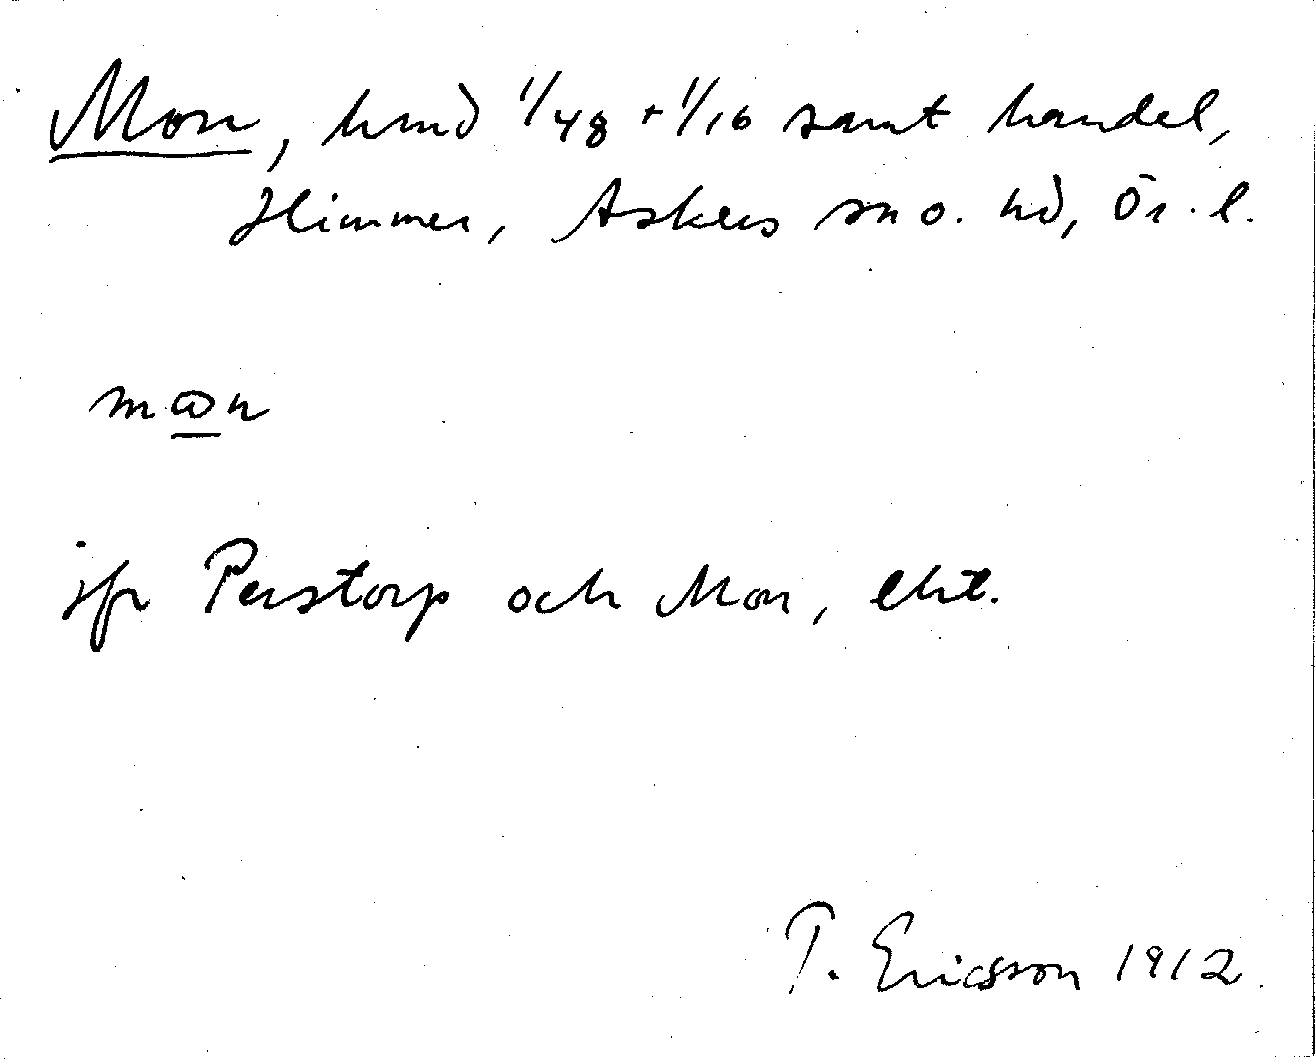 Mon, hmd 1/48 + 1/16 samt handel,
Himmer, Askers sn o. hd, Ör. l.
mωn
jfr Perstorp och Mon, eht.
T. Ericsson 1912